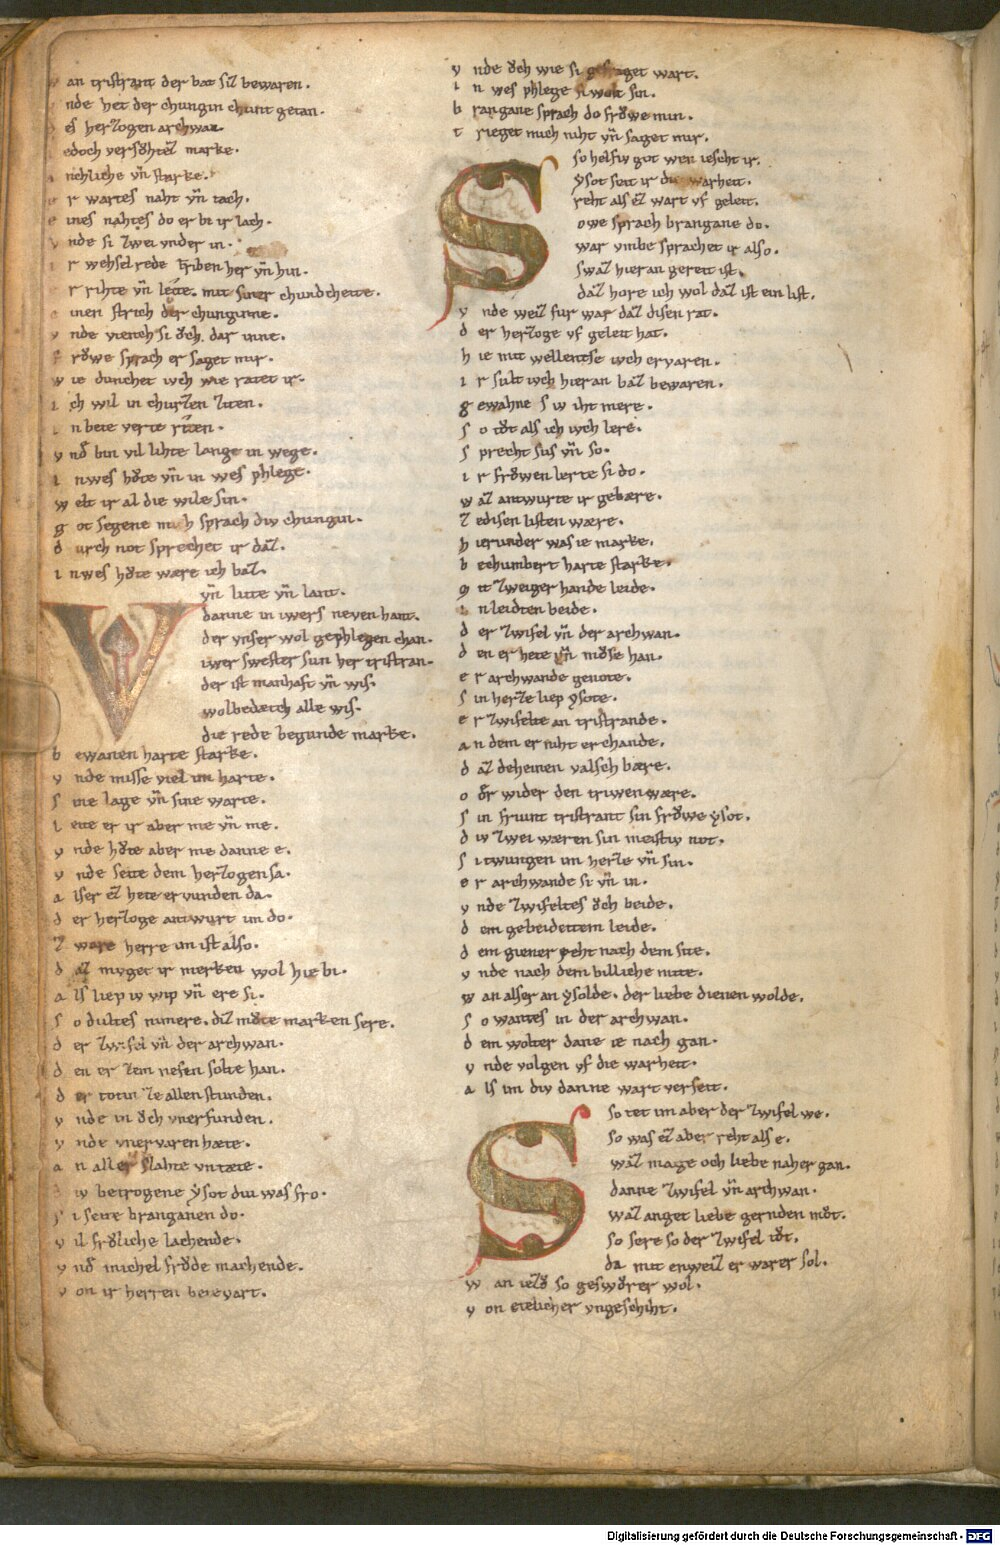 v an tristrant der bat siz bewaren.
v nde het der chungin chunt getan.
d es herzogen archwan.
i edoch versůhtez marke.
r ichliche vn̄ starke.
e r wartes naht vn̄ tach.
e ines nahtes do er bi ir lach.
v nde si zwei vnder in.
i r wehselrede triben her vn̄ hin.
e r rihte vn̄ leite. mit siner chundcheite.
e inen strich der chunginne.
v nde viench si ŏch. dar inne.
f rŏwe sprach er saget mir.
w ie dunchet iuch wie ratet ir.
i ch wil in churzen ziten.
i n bete verte riten.
v nd̄ bin vil lihte lange in wege.
i nwes hůte vn̄ in wes phlege.
w elt ir al die wile sin.
g ot segene mich sprach diu chungin.
d urch not sprechet ir daz.
i nwes hůte wære ich baz.
V vn̄ liute vn̄ lant.
danne in iwers neven hant.
der vnser wol gephlegen chan.
iwer swester sun her tristran.
der ist manhaft vn̄ wis.
wolbedæch alle wis.
die rede begunde marke.
b ewanen harte starke.
v nde misse viel im harte.
s ine lage vn̄ sine warte.
l eite er ir aber me vn̄ me.
v nde hůte aber me danne e.
v nde seite dem herzogen sa.
a lser ez hete ervunden da.
d er herzoge antwurt im do.
z ware herre im ist also.
d az muget ir merken wol hie bi.
a ls liep iv wip vn̄ ere si.
s o dultes nimere. diz můte marken sere.
d er zwifel vn̄ der archwan.
d en er zem nefen solte han.
d er totin ze allen stunden.
v nde in ŏch vnerfunden.
v nde vnervaren hæte.
a n aller slahte vntæte.
d iv betrogene ẏsot diu was fro.
s i seite branganen do.
v il frŏliche lachende.
v nd̄ michel frŏde machende.
v on ir herren betevart.
v nde ŏch wie si gefraget wart.
i n wes phlege si wolt sin.
b rangane sprach do frŏwe min.
t rieget mich niht vn̄ saget mir.
S so helfiu got wen iescht ir.
ẏsot seit ir die warheit.
reht als ez wart vf geleit.
owe sprach brangane do.
war vmbe sprachet ir also.
swaz hieran gereit ist.
daz hore ich wol daz ist ein list.
v nde weiz fur war daz disen rat.
d er herzoge vf geleit hat.
h ie mit wellentse iuch ervaren.
i r sult iuch hieran baz bewaren.
g ewahne s iv iht mere.
s o tůt als ich iuch lere.
s precht sus vn̄ so.
i r frŏwen lerte si do.
w az antwurte ir gebære.
z e disen listen wære.
h ierunder was ie marke.
b echumbert harte starke.
m it zweiger hande leide.
i n leidten beide.
d er zwifel vn̄ der archwan.
d en er hete vn̄ můse han.
e r archwande genote.
s in herze liep ẏsote.
e r zwifelte an tristrande.
a n dem er niht erchande.
d az deheinen valsch bære.
o d̄r wider den triwen wære.
s in friunt tristrant sin frŏwe ẏsot.
d iu zwei wæren sin meistiu not.
s i twungen im herze vn̄ sin.
e r archwande si vn̄ in.
v nde zwifeltes ŏch beide.
d em gebeidettem leide.
d em giener reht nach dem site.
v nde nach dem billiche mite.
w an alser an ẏsolde. der liebe dienen wolde.
s o wantes in der archwan.
d em wolter dane ie nach gan.
v nde volgen vf die warheit.
a ls im diu danne wart verseit.
S so tet im aber der zwifel we.
so was ez aber reht als e.
waz mage och liebe naher gan.
danne zwifel vn̄ archwan.
waz anget liebe gernden můt.
so sere so der zwifel tůt.
da mit enweiz er war er sol.
w an iezŏ so geswůrer wol.
v on etelicher vngeschiht.
Digitalisierung gefördert durch die Deutsche Forschungsgemeinschaft - DFG